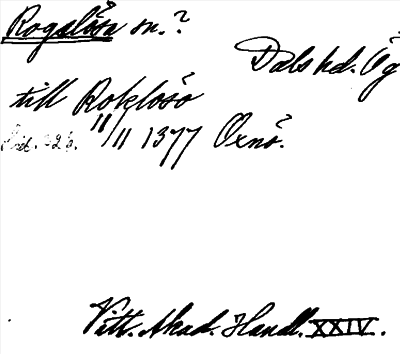 Rogslösa sn.?
Dals hd. Ög
till Roklösö
11/11 1377 Oxnö.
Vitt. Akad. Handl. XXIV.